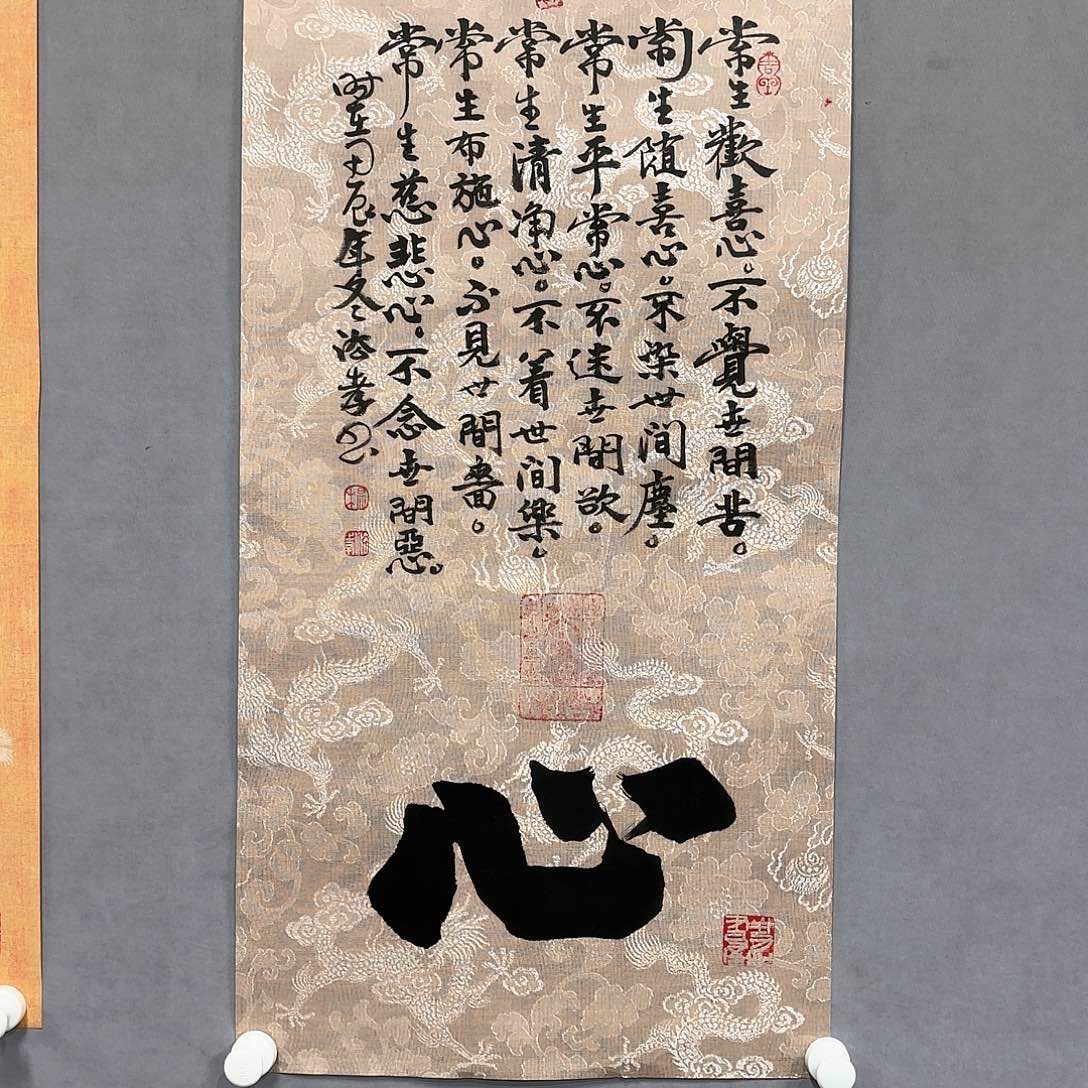 常生歡喜心。不覺世間苦。
常生随喜心。不染世间塵。
常生平常心。不迷世間欲。
常生清净心。不着世间樂。
常生布施心。不見世間嗇。
常生慈悲心。不念世間惡。
时在甲辰年冬
心